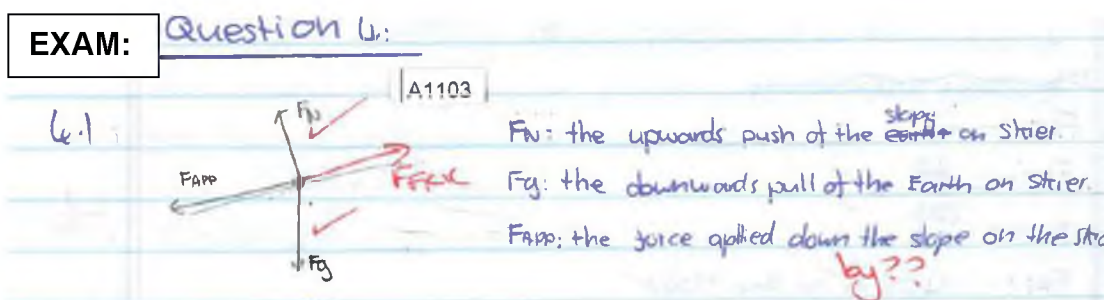 EXAM:
Question 4:
A1103
4.1
FN
FN: the upwards push of the slope on skier.
FAPP
Ffric
Fg: the downwards pull of the Earth on skier.
FAPP: the force applied down the slope on the
Fg
by??